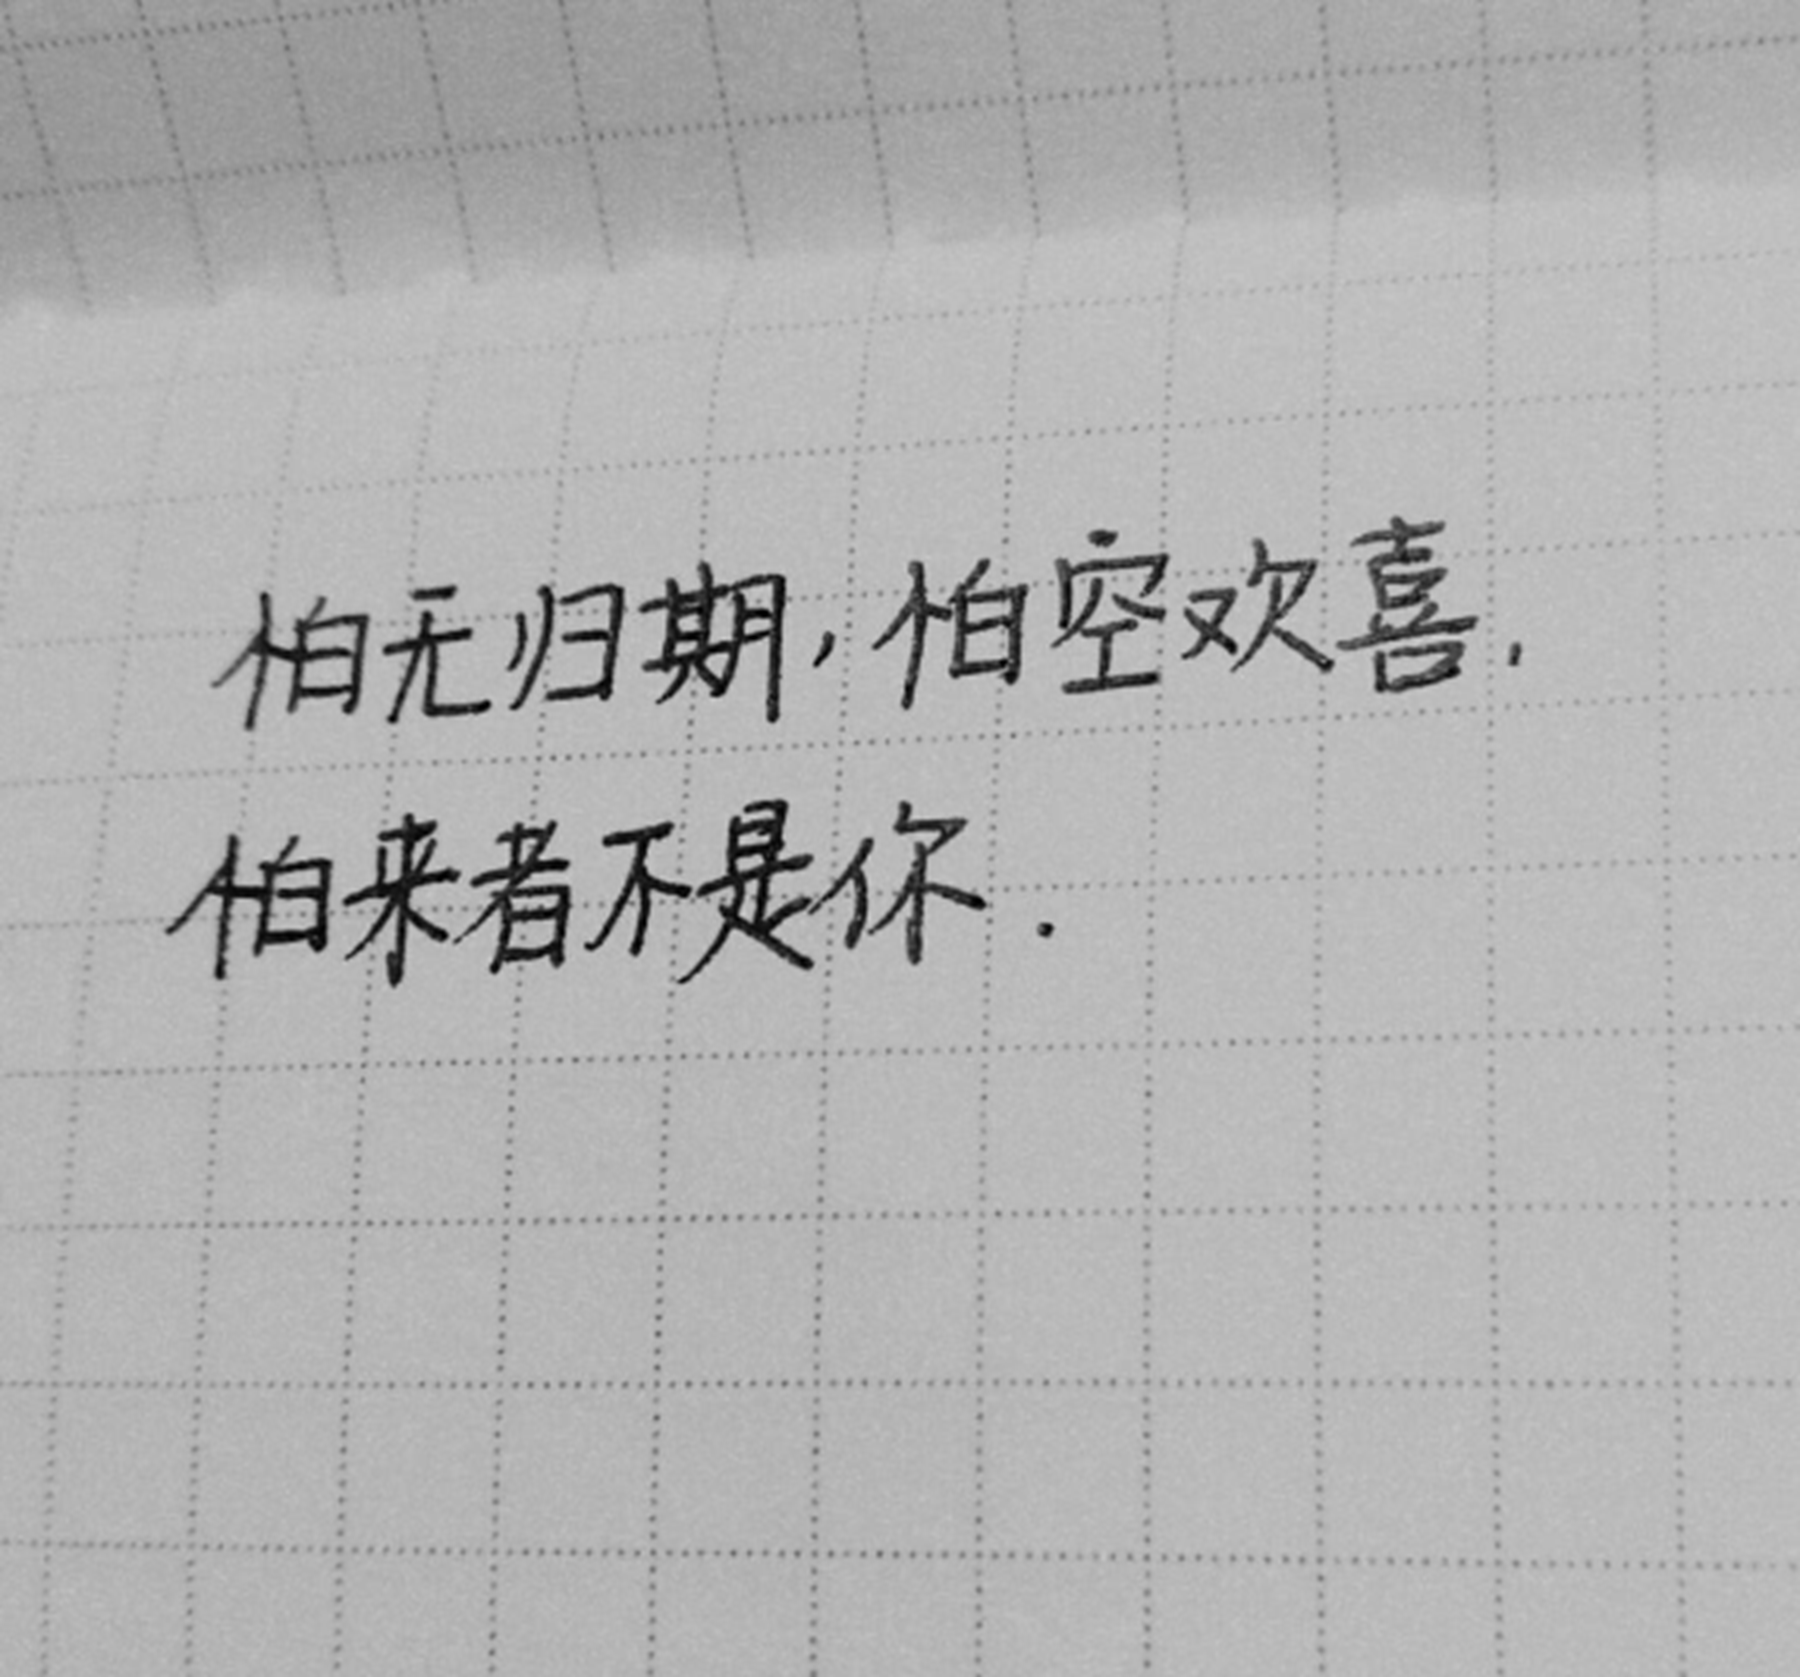 怕无归期,怕空欢喜,
怕来者不是你.